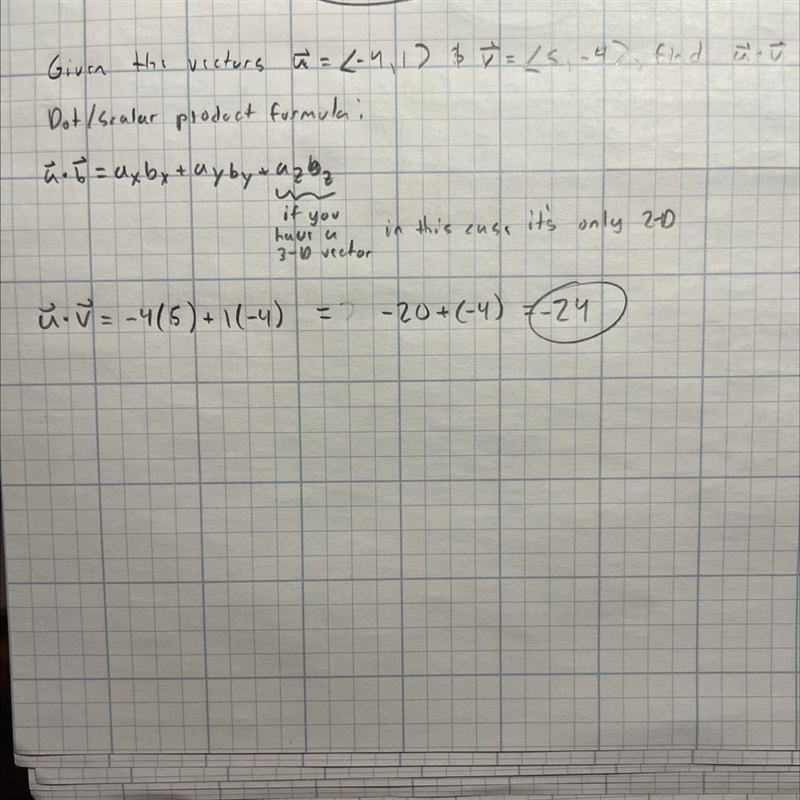 Given the vectors u⃗ = ⟨-4, 1⟩ & v⃗ = ⟨5, -4⟩, find u⃗ · v⃗
Dot/scalar product formula:
a⃗ · b⃗ = aₓbₓ + aᵧbᵧ + a_z b_z
if you
have a
3-D vector
in this case it's only 2-D
u⃗ · v⃗ = -4(5) + 1(-4) = -20 + (-4) = -24